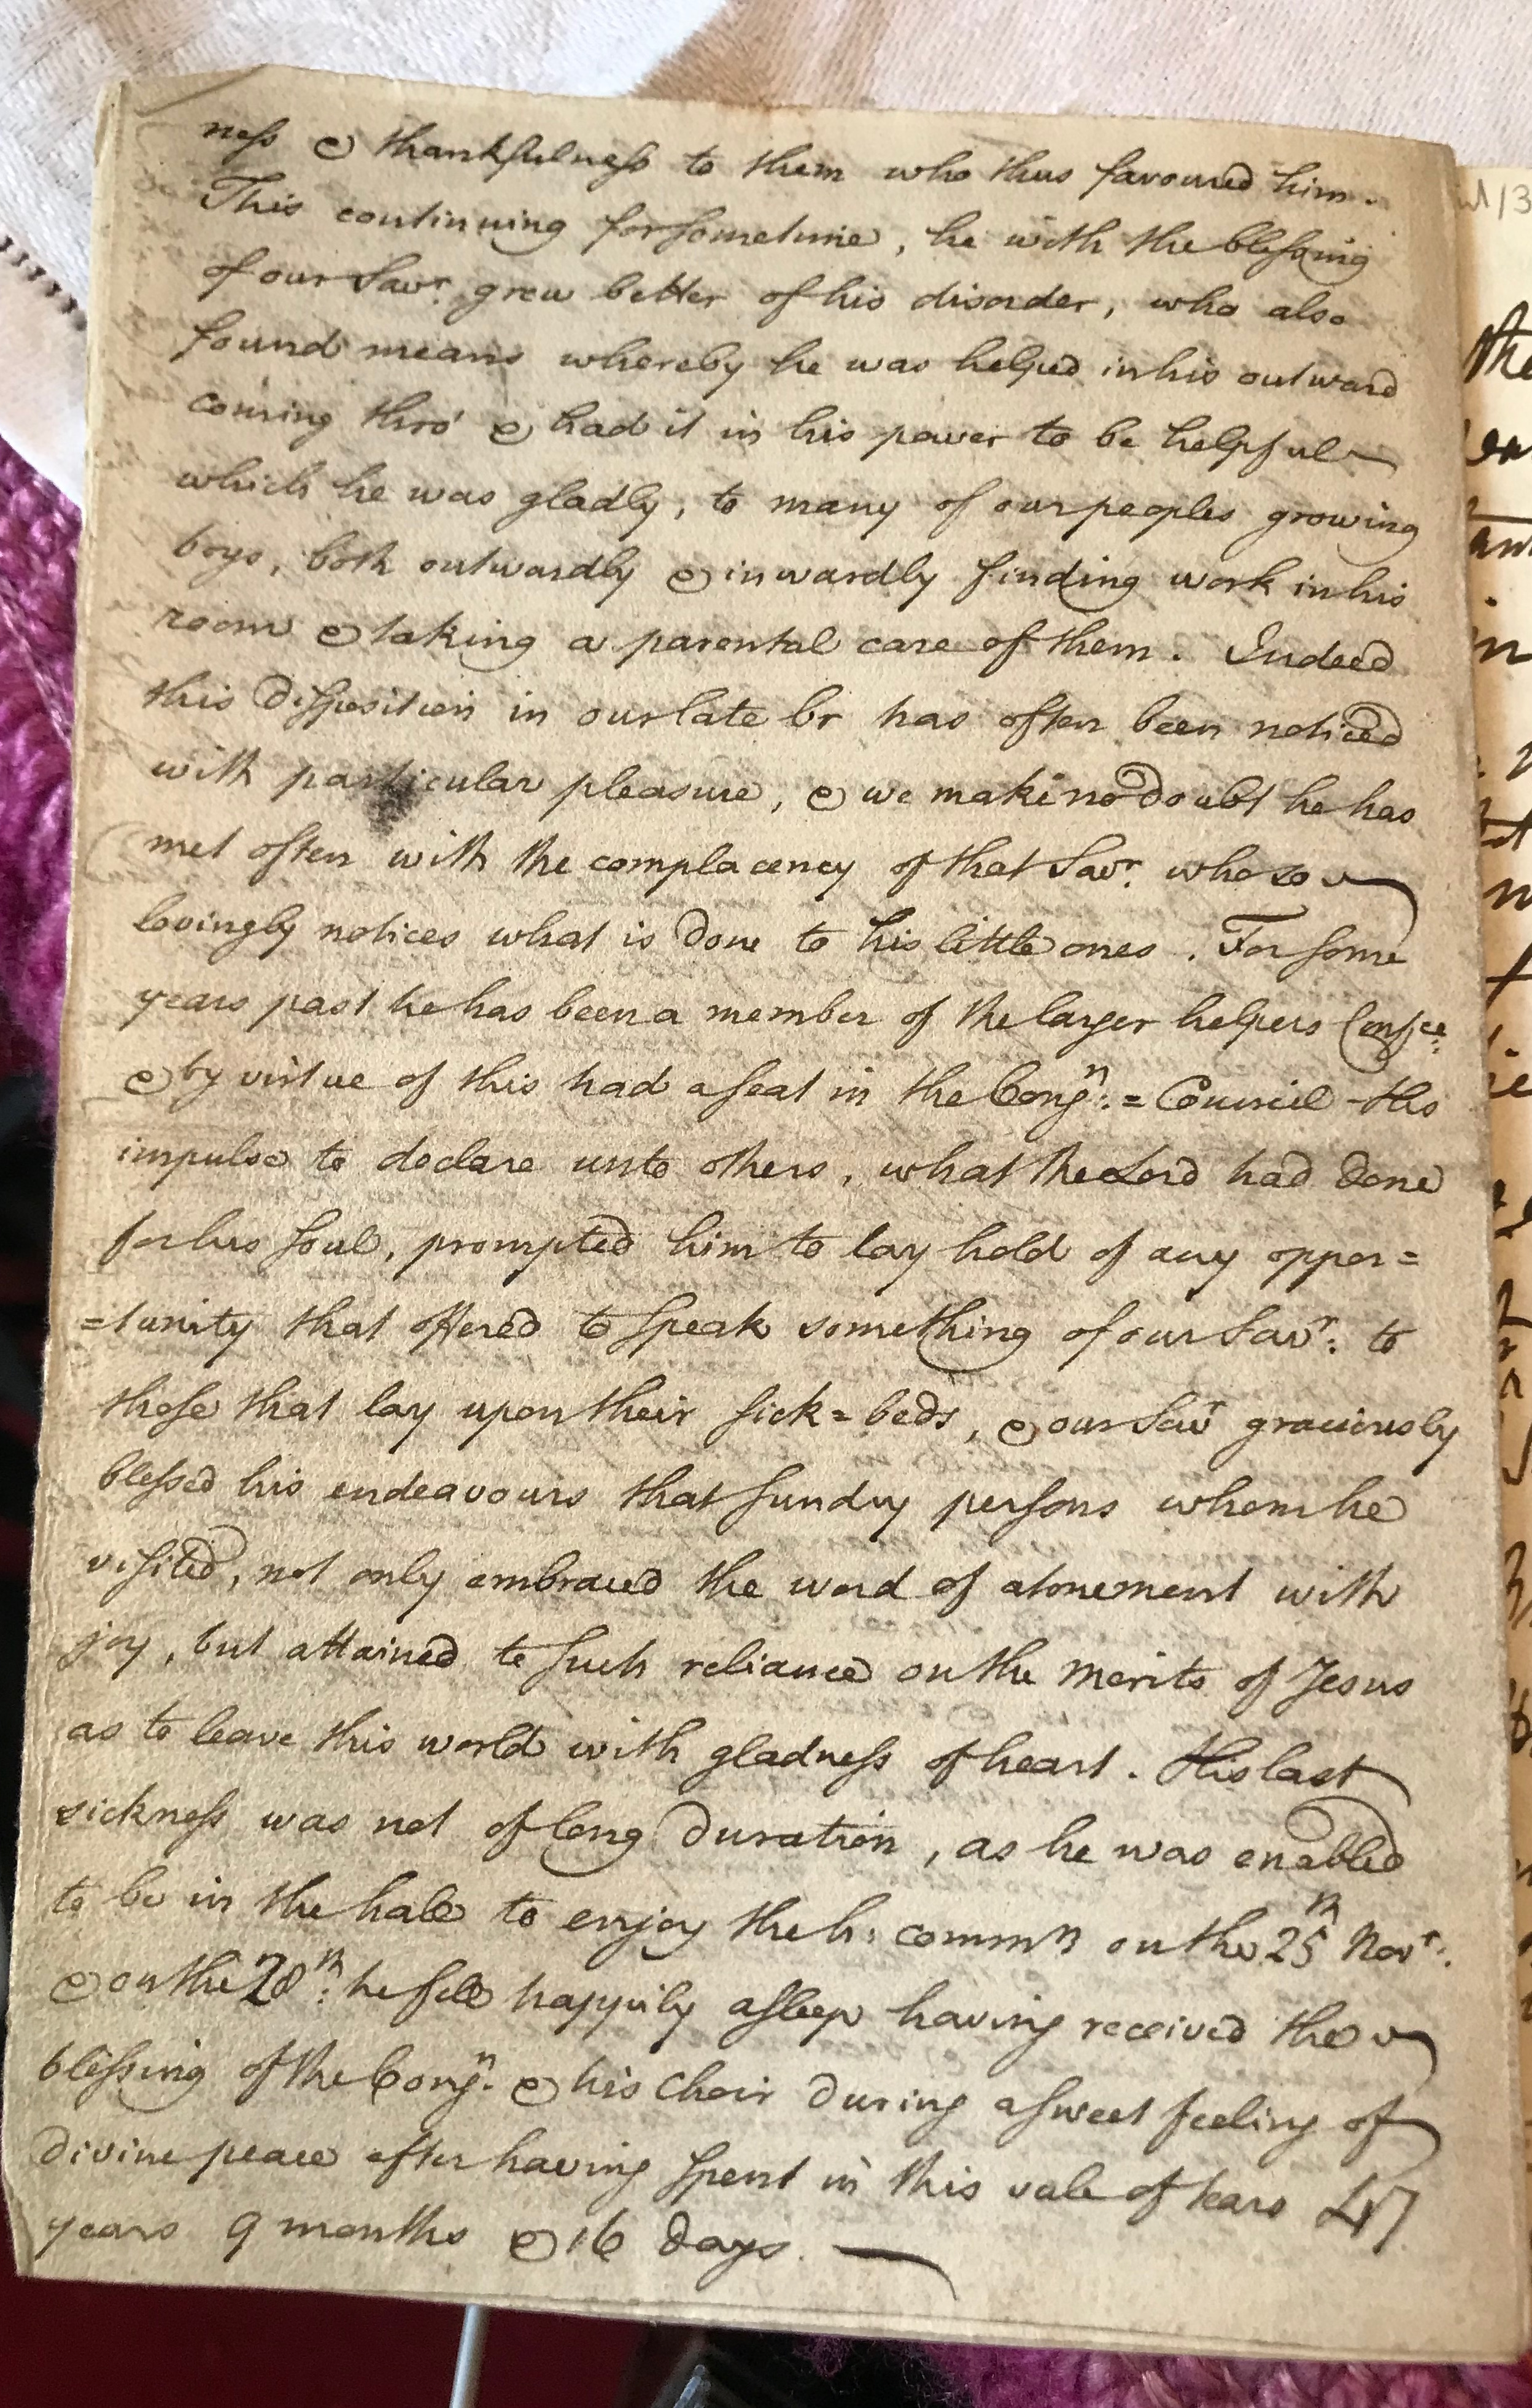 ness & thankfulness to them who thus favoured him.
This continuing for sometime, he with the blessing
of our Savr. grew better of his disorder, who also
found means whereby he was helped in his outward
coming thro' & had it in his power to be helpful
which he was gladly, to many of our peoples growing
boys, both outwardly & inwardly finding work in his
room & taking a parental care of them. Indeed
this disposition in our late br has often been noticed
with particular pleasure, & we make no doubt he has
met often with the complacency of that Savr. who so
lovingly notices what is done to his little ones. For some
years past he has been a member of the larger helpers Confce:
& by virtue of this had a seat in the Congn:=Council - this
impulse to declare unto others, what the Lord had done
for his soul, prompted him to lay hold of any oppor=
=tunity that offered to speak something of our Savr: to
those that lay upon their sick=beds, & our Savr graciously
blessed his endeavours that sundry persons whom he
visited, not only embraced the word of atonement with
joy, but attained to such reliance on the merits of Jesus
as to leave this world with gladness of heart. His last
sickness was not of long duration, as he was enabled
to be in the hall to enjoy the h: commn on the 25th Novr:
& on the 28th: he fell happily asleep having received the
blessing of the Congn. & his Choir during a sweet feeling of
divine peace after having spent in this vale of tears 47
years 9 months & 16 days.